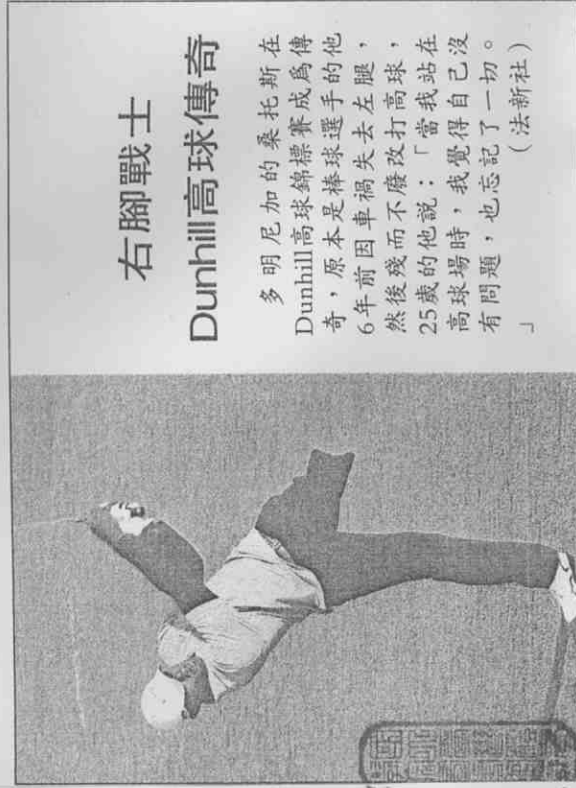 右腳戰士
Dunhill高球傳奇
多明尼加的桑托斯在
Dunhill高球錦標賽成爲傳
奇，原本是棒球選手的他
6年前因車禍失去左腿，
然後殘而不廢改打高球，
25歲的他説：「當我站在
高球場時，我覺得自己沒
有問題，也忘記了一切。
」　　　　（法新社）